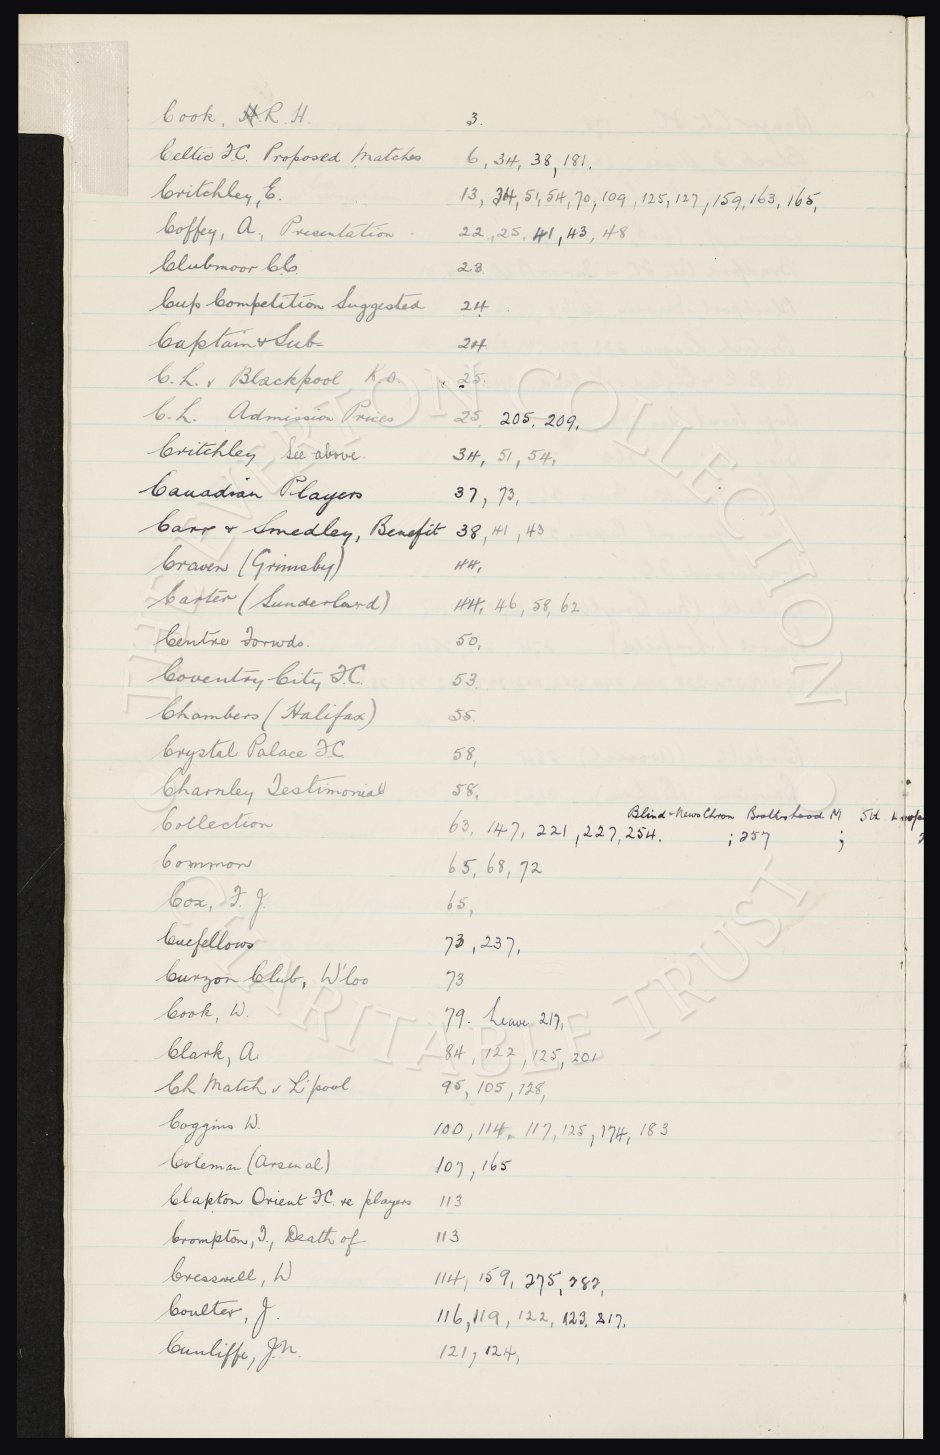 Cook, R. H. 3.
Celtic F.C. Proposed Matches 6, 34, 38, 181.
Critchley, E. 13, 34, 51, 54, 70, 109, 125, 127, 159, 163, 165,
Coffey, A., Presentation. 22, 25, 41, 43, 48
Clubmoor C.C. 23.
Cup Competition Suggested 24.
Captain & Sub- 24
C. L. v Blackpool K.O. 25.
C. L. Admission Prices 25, 205, 209.
Critchley See above. 34, 51, 54,
Canadian Players 37, 73,
Carr & Smedley, Benefit 38, 41, 43
Craven (Grimsby) 44,
Carter (Sunderland) 44, 46, 58, 62
Centre Forwds. 50,
Coventry City F.C. 53.
Chambers (Halifax) 55.
Crystal Palace F.C. 58,
Charnley Testimonial 58,
Blind - News Chron Brotherhood M
Collection 63, 147, 221, 227, 254. ; 257 ;
Common 65, 68, 72
Cox, F. J. 65,
Cuefellows 73, 237,
Curzon Club, W'loo 73
Cook, W. 79. Leave 217,
Clark, A. 84, 122, 125, 201
Ch Match v L'pool 95, 105, 128,
Coggins W. 100, 114, 117, 125, 174, 183
Coleman (Arsenal) 107, 165
Clapton Orient F.C. re players 113
Crompton, T., Death of 113
Cresswell, W 114, 159, 275, 282,
Coulter, J. 116, 119, 122, 123, 217,
Cunliffe, J.N. 121, 124,
THE EVERTON COLLECTION
CHARITABLE TRUST